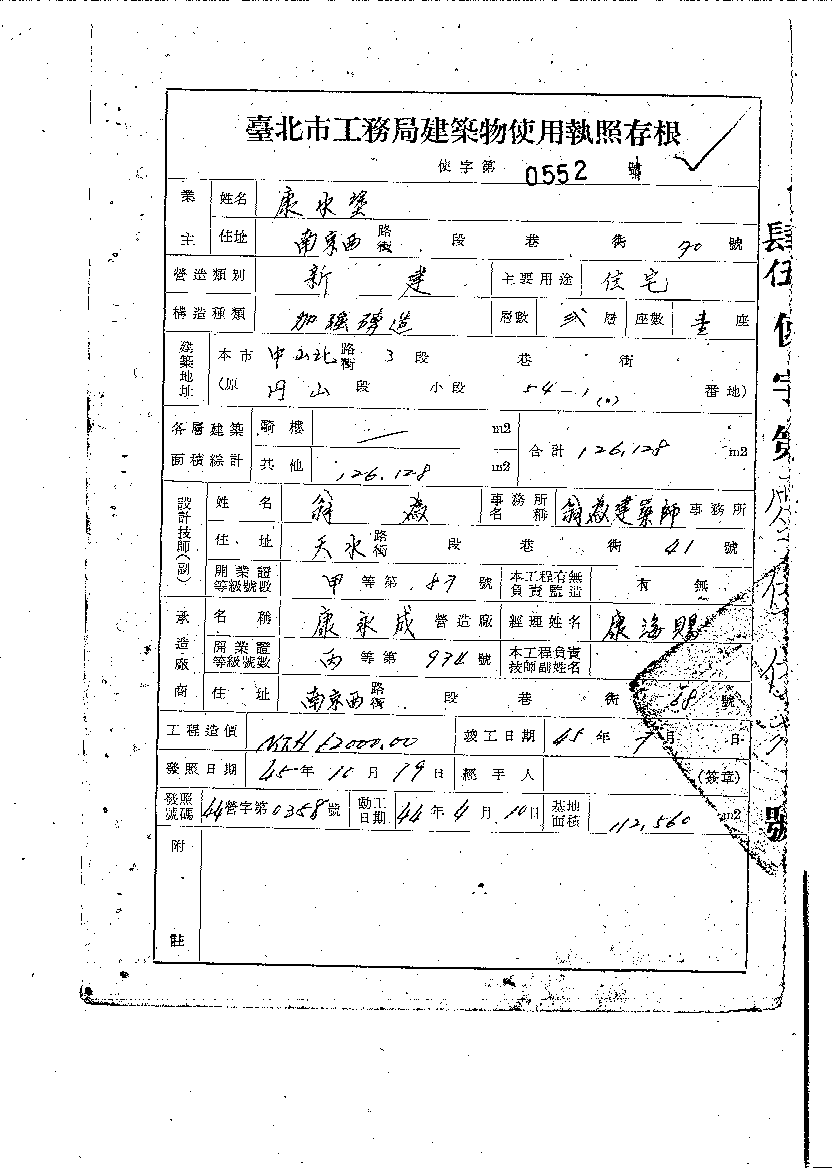 臺北市工務局建築物使用執照存根
使字第 0552 號
業主 姓名 康水塗
住址 南京西 路街 段 巷 街 70 號
營造類別 新建 主要用途 住宅
構造種類 加強磚造 層數 弍 層 座數 壹 座
建築地址 本市 中山北 路街 3 段 巷 街
(原 円山 段 小段 54-1 番地)
各層建築面積綜計 騎樓 — m2 合計 126.128 m2
其他 126.128 m2
設計技師(副) 姓名 翁為 事務所名稱 翁為建築師 事務所
住址 天水 路街 段 巷 街 41 號
開業證等級號數 甲 等第 87 號 本工程有無負責監造 有 無
承造廠商 名稱 康永成 營造廠 經理姓名 康海賜
開業證等級號數 丙 等第 974 號 本工程負責技師副姓名
住址 南京西 路街 段 巷 街 68 號
工程造價 52000.00 竣工日期 45 年 7 月 日
發照日期 45 年 10 月 19 日 經手人 (簽章)
發照號碼 44 營字第 0358 號 動工日期 44 年 4 月 10 日 基地面積 112.560 m2
附註
肆伍使字第 號